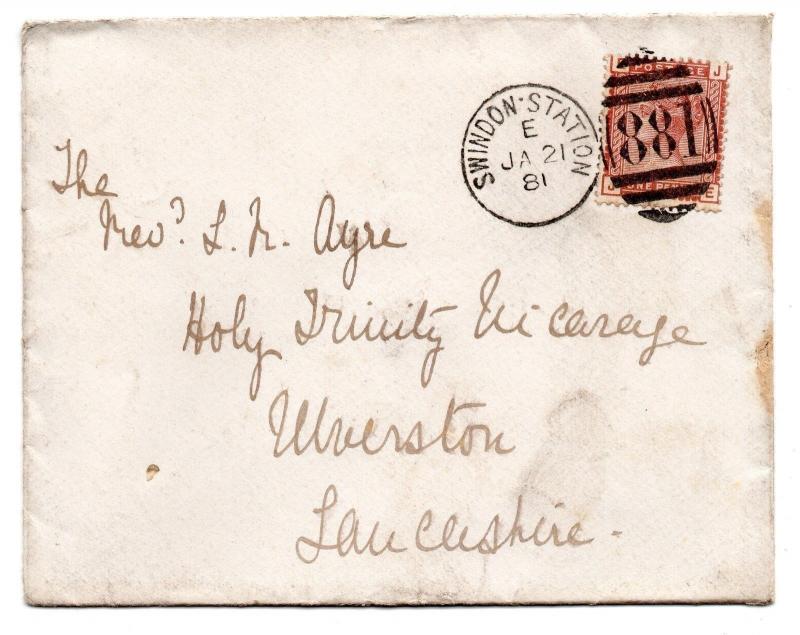 SWINDON·STATION
E
JA 21
81
POSTAGE J
881
J ONE PENNY E
The
Revd. L. R. Ayre
Holy Trinity Vicarage
Ulverston
Lancashire.